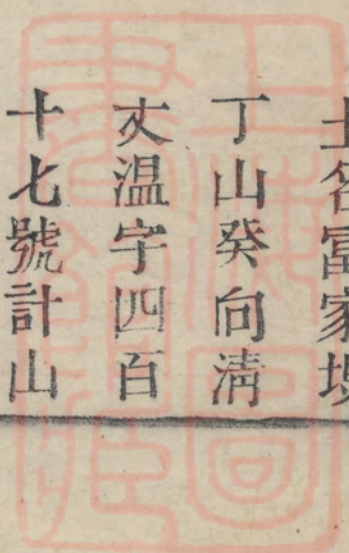 土名富家塊
丁山癸向清
丈温字四百
十七號計山